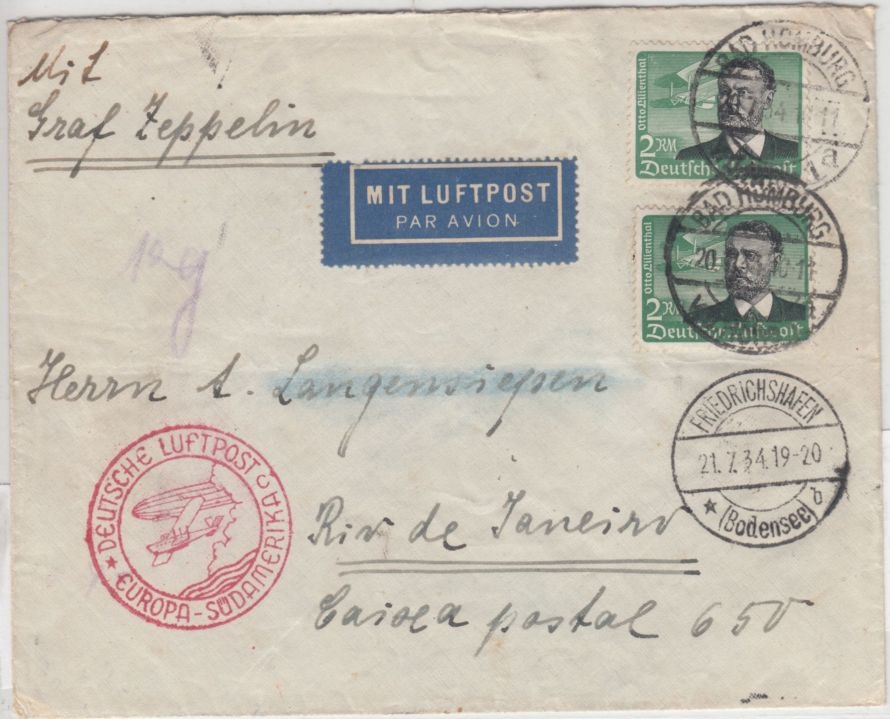 Mit
Graf Zeppelin
MIT LUFTPOST
PAR AVION
Otto Lilienthal
2 RM
Deutsche Luftpost
BAD HOMBURG
a
Otto Lilienthal
2 RM
Deutsche Luftpost
BAD HOMBURG
20.
Herrn A. Langensiepen
FRIEDRICHSHAFEN
21.7.34.19-20
(Bodensee)
DEUTSCHE LUFTPOST
EUROPA-SÜDAMERIKA
Rio de Janeiro
Caixa postal 650